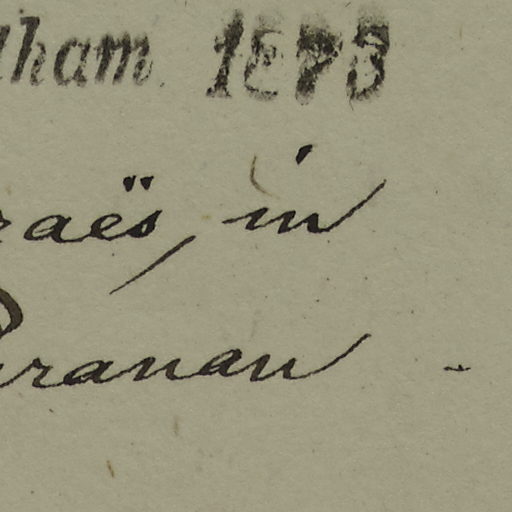 lham 1873
raës, in
Paranan -